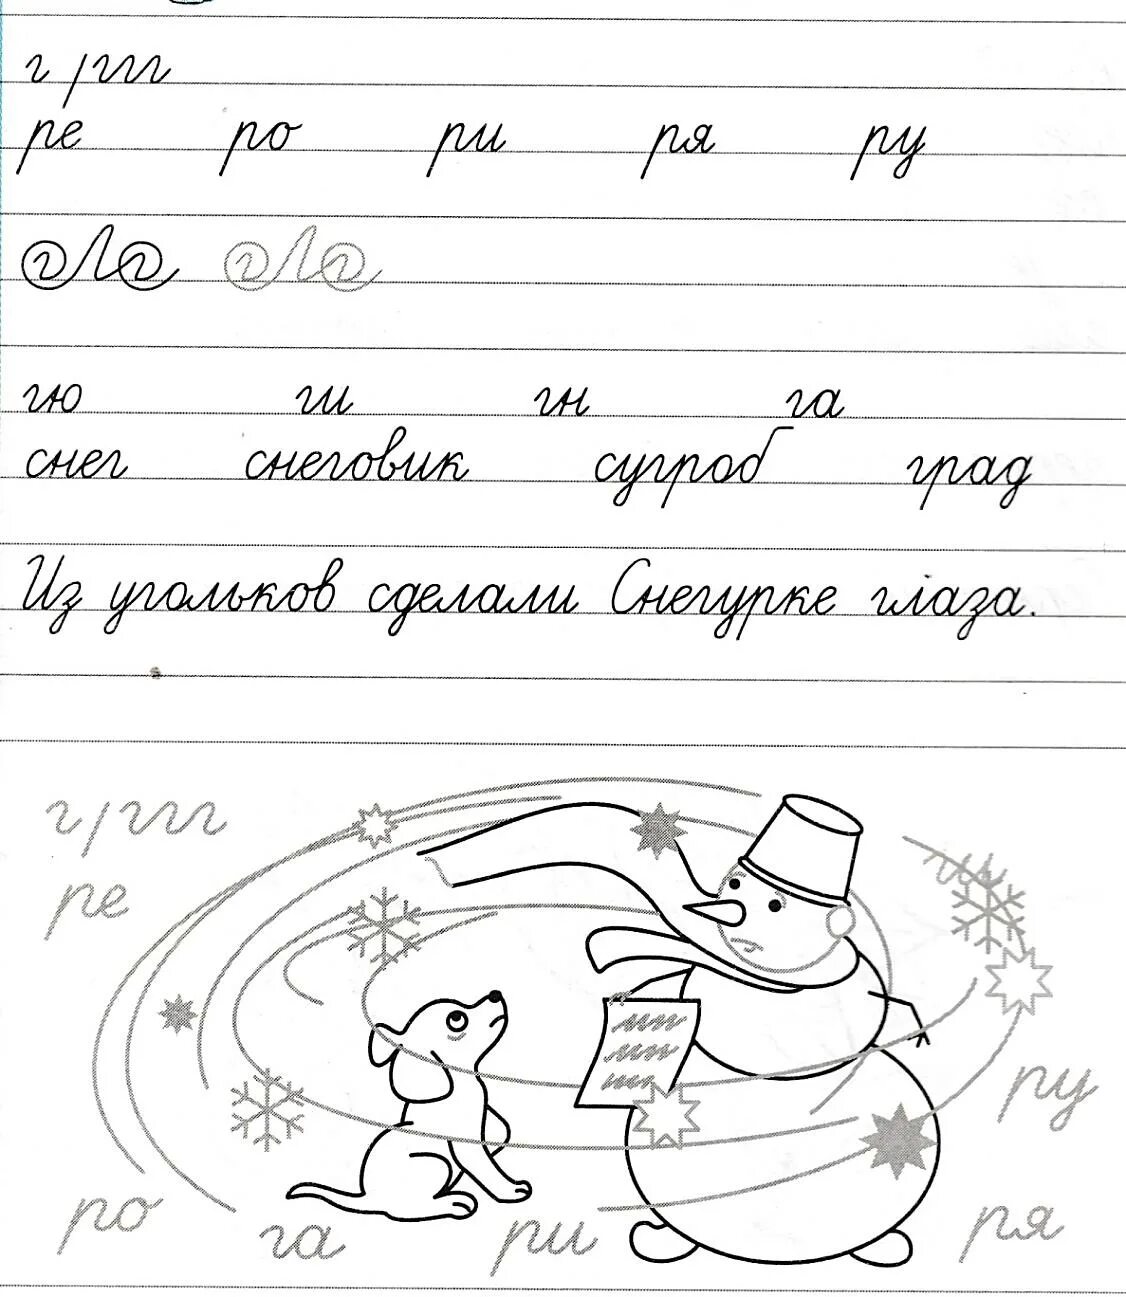 г ггг
ре ро ри ря ру
гю ги гн га
снег снеговик сугроб град
Из угольков сделали Снегурке глаза.
г ггг
ре
ги
ру
ро га ри ря